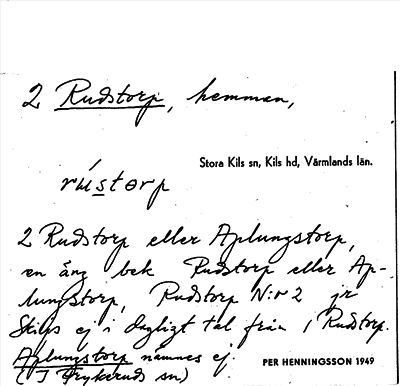 2 Rudstorp, hemman,
Stora Kils sn, Kils hd, Värmlands län.
rústorp
2 Rudstorp eller Aplungstorp,
en äng bek Rudstorp eller Ap-
lungstorp, Rudstorp N:r 2 jr
Skiljs ej i dagligt tal från 1 Rudstorp.
Aplungstorp nämnes ej.
PER HENNINGSSON 1949
(I Frykeruds sn)